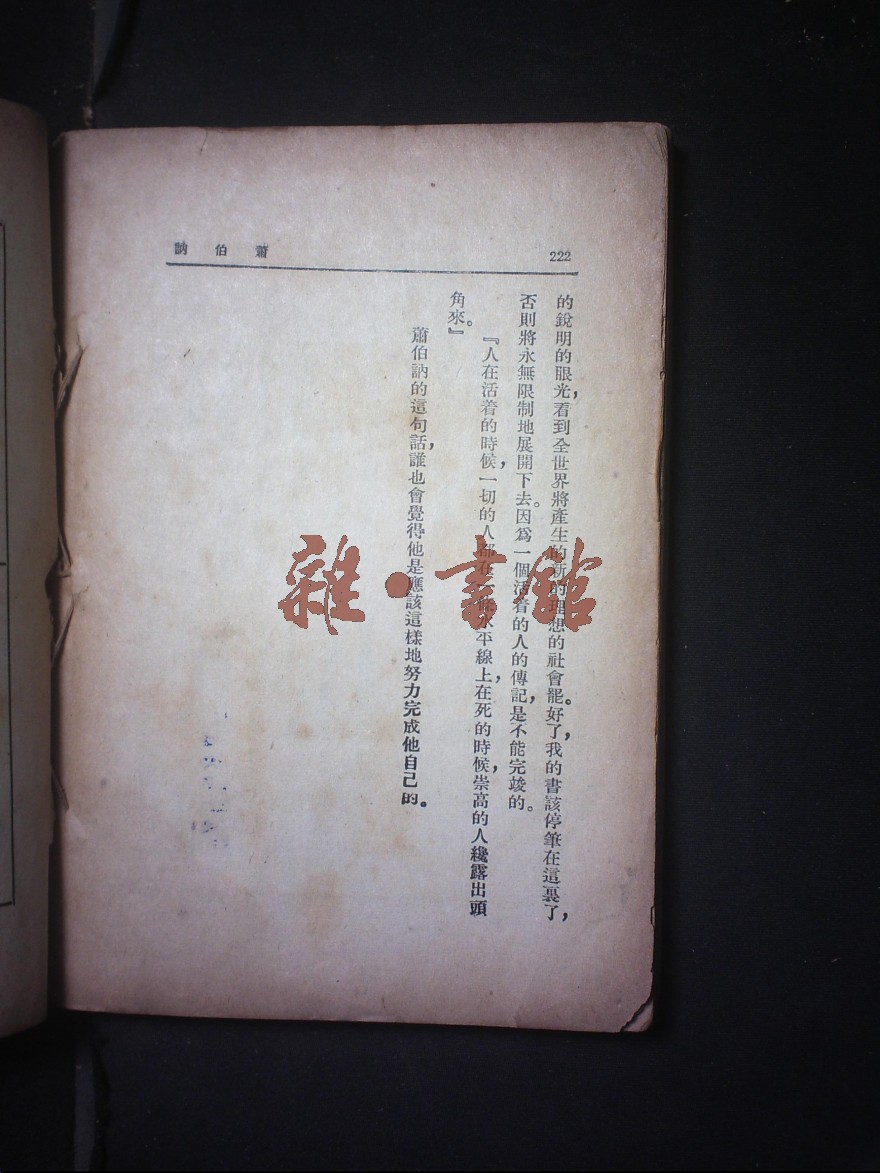 222
蕭伯訥
的銳明的眼光，看到全世界將產生的新的理想的社會罷。好了，我的書該停筆在這裏了，
否則將永無限制地展開下去。因爲一個活着的人的傳記，是不能完竣的。
『人在活着的時候，一切的人都在一條水平線上，在死的時候，崇高的人纔露出頭
角來。』
蕭伯訥的這句話，誰也會覺得他是應該這樣地努力完成他自己的。
雜·書館